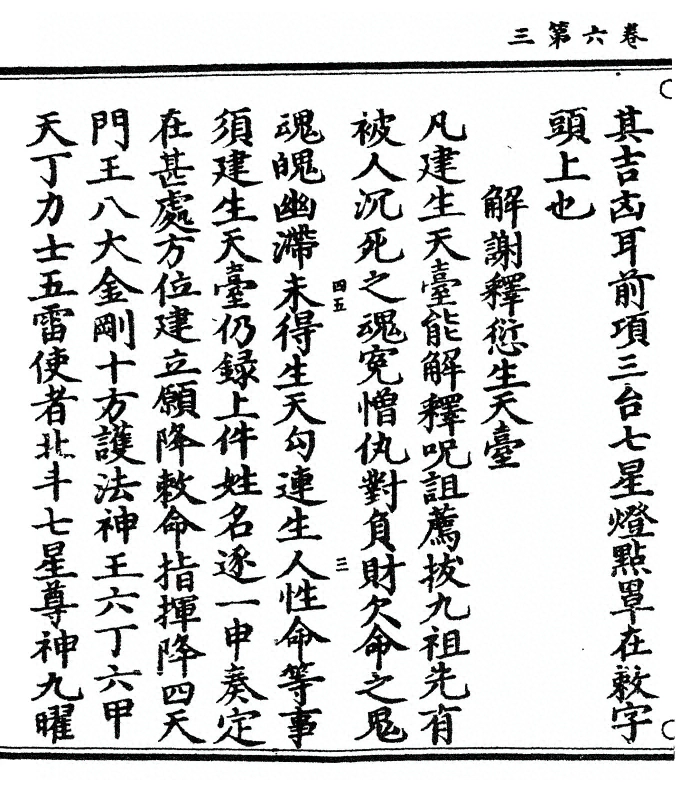 卷六第三
其吉凶耳前項三台七星燈點罩在敕字
頭上也
解謝釋愆生天臺
凡建生天臺能解釋呪詛薦拔九祖先有
被人沉死之魂冤憎仇對負財欠命之鬼
四五　三
魂魄幽滯未得生天勾連生人性命等事
須建生天臺仍録上件姓名逐一申奏定
在甚處方位建立願降敕命指揮降四天
門王八大金剛十方護法神王六丁六甲
天丁力士五雷使者北斗七星尊神九曜